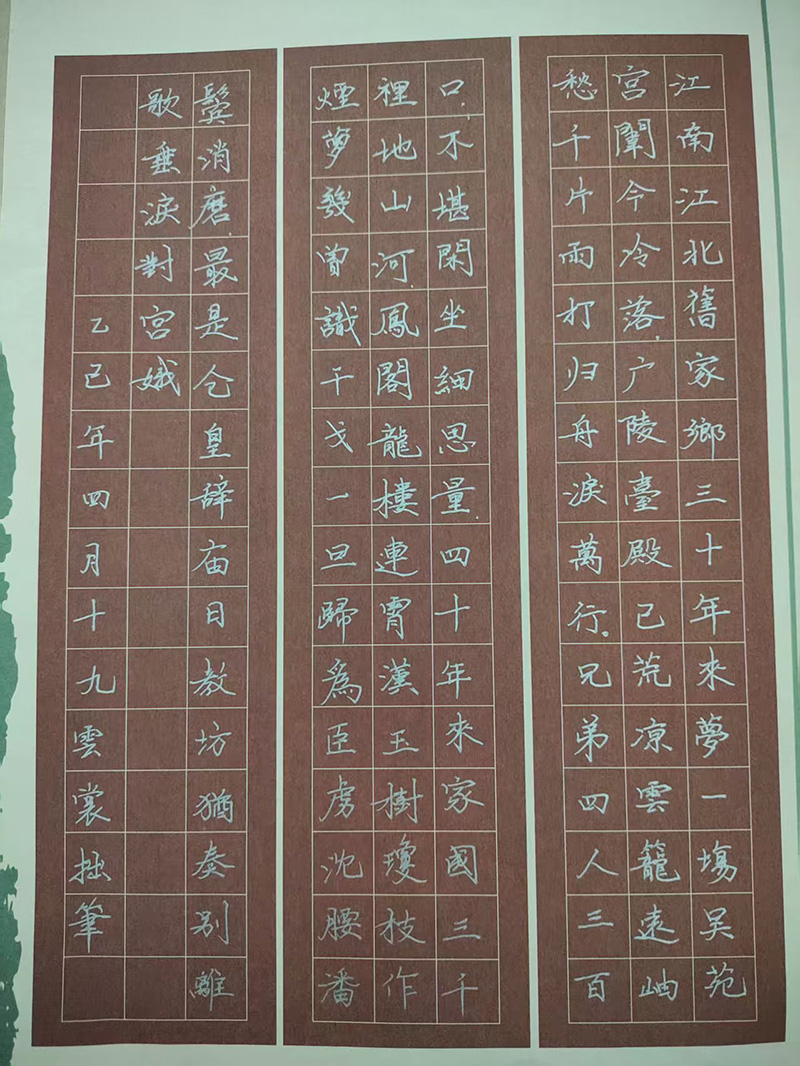 江南江北舊家鄉三十年來夢一場吳苑
宮闈今冷落广陵臺殿已荒凉雲籠遠岫
愁千片雨打归舟淚萬行兄弟四人三百
口不堪閑坐細思量四十年來家國三千
裡地山河鳳閣龍樓連霄漢玉樹瓊枝作
煙夢幾曾識干戈一旦歸為臣虜沈腰潘
鬢消磨最是仓皇辞庙日教坊猶奏别離
歌垂淚對宮娥
乙己年四月十九雲裳拙筆